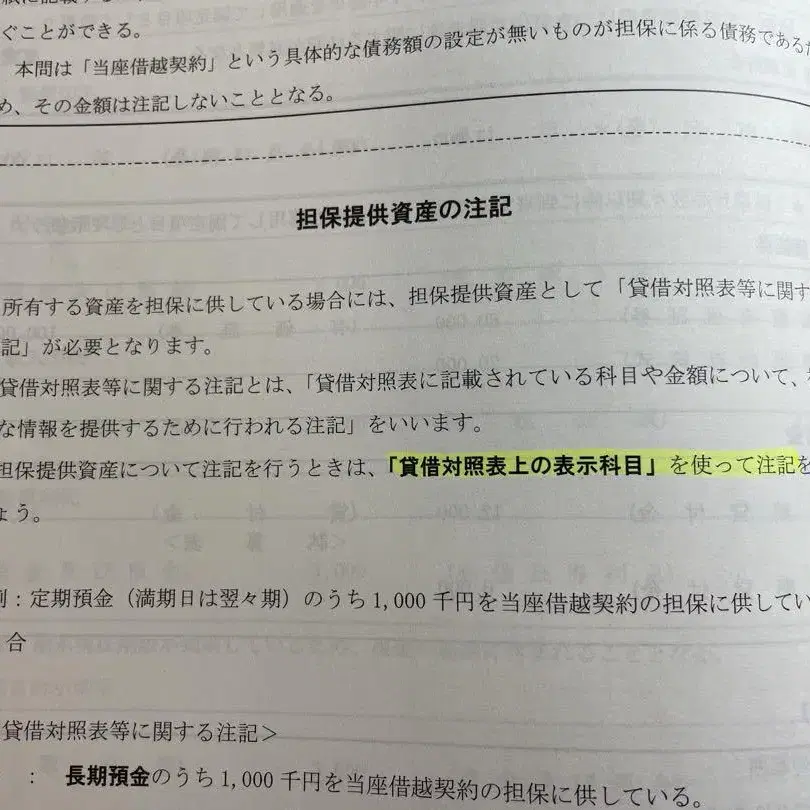 ぐことができる。
本問は「当座借越契約」という具体的な債務額の設定が無いものが担保に係る債務である
め、その金額は注記しないこととなる。
担保提供資産の注記
所有する資産を担保に供している場合には、担保提供資産として「貸借対照表等に関す
記」が必要となります。
貸借対照表等に関する注記とは、「貸借対照表に記載されている科目や金額について、
な情報を提供するために行われる注記」をいいます。
担保提供資産について注記を行うときは、「貸借対照表上の表示科目」を使って注記を
ょう。
例：定期預金（満期日は翌々期）のうち1,000千円を当座借越契約の担保に供してい
合
貸借対照表等に関する注記＞
： 長期預金のうち1,000千円を当座借越契約の担保に供している。